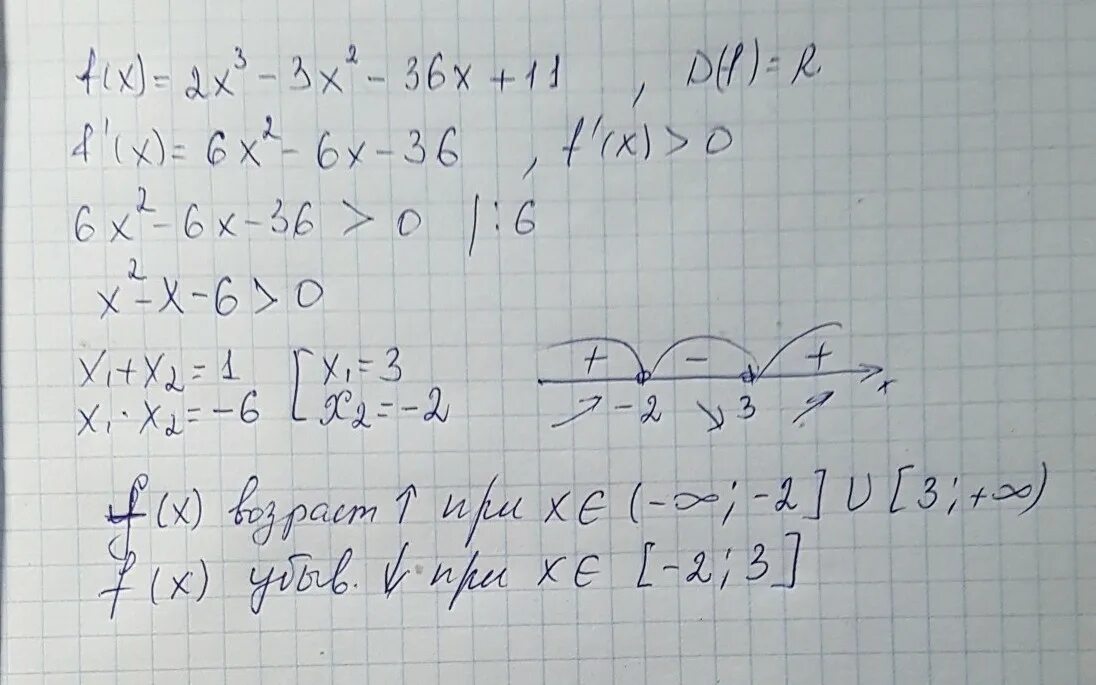 f(x) = 2x³ - 3x² - 36x + 11 , D(f) = R.
f'(x) = 6x² - 6x - 36 , f'(x) > 0
6x² - 6x - 36 > 0 | : 6
x² - x - 6 > 0
x₁ + x₂ = 1 [ x₁ = 3
x₁ · x₂ = -6 [ x₂ = -2
+ - +
↗ -2 ↘ 3 ↗ x
f(x) возраст ↑ при x ∈ (-∞; -2] ∪ [3; +∞)
f(x) убыв. ↓ при x ∈ [-2; 3]